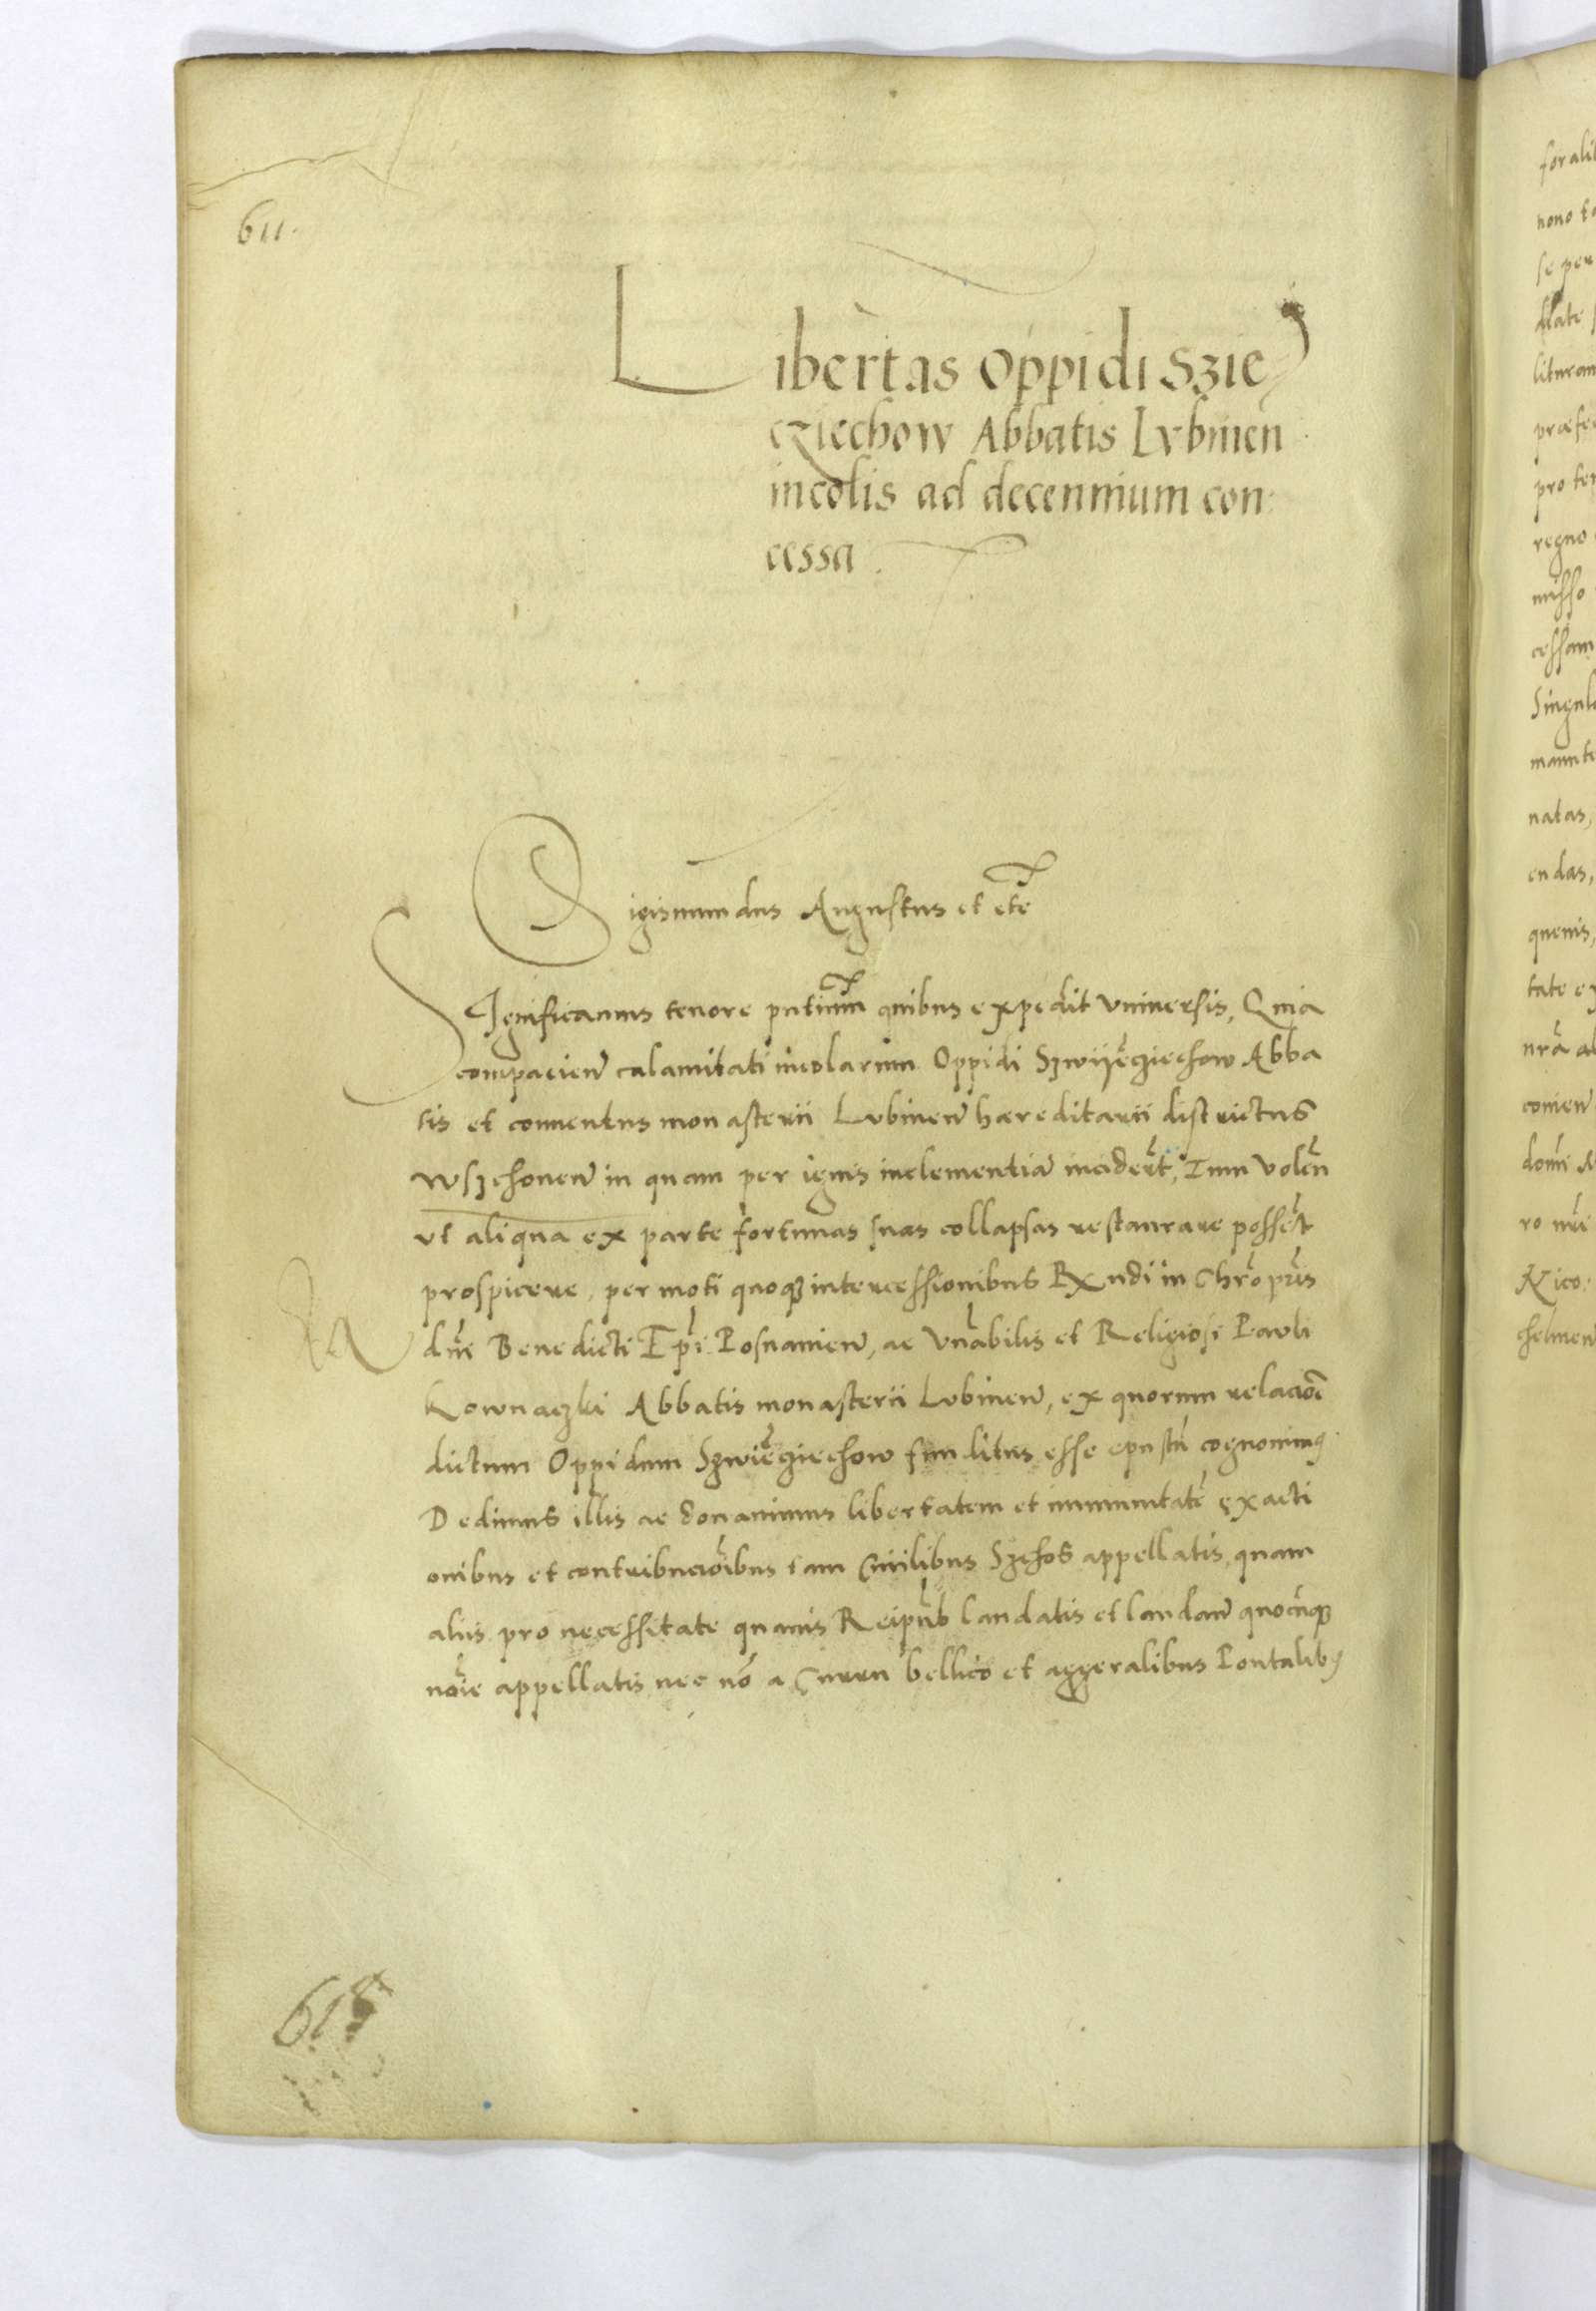 611.
Libertas Oppidi Szie
cziechow Abbatis Lvbinen
incolis ad decennium con
cessa.
Sigismundus Augustus et etc
Significamus tenore pñtium quibus expedit vniuersis, Quia
compacien calamitati incolarum Oppidi Szwÿeczie​chow Abba
tis et conuentus monasterii Lvbinen haereditarii districtus
Wszchouen in quam per ignis inclementiã inciderũt, Tum volẽn
vt aliqua ex parte fortunas suas collapsas restaurare possẽt
prospicere, permoti quoqȝ intercessionibus Rxndi in Chrõ pñis
dñi Benedicti Epĩ Posnanien, ac Vñabilis et Religiosi Pauli
Kownaczki Abbatis monasterii Lvbinen, ex quorum relaciõe
dictum Oppidum Szwięcziechow funditus esse exustũ cognouimꝰ
Dedimus illis ac donauimus libertatem et immunitatẽ exacti
onibus et contribuciõibus tam Ciuilibus Szchos appellatis quam
aliis pro necessitate quauis Reipub laudatis et laudan quocũqȝ
nõie appellatis nec nõ a Curru bellico et aggeralibus Pontalibꝰ
615
forali
nono
se per
litteram
regno
misso
cessam
Singul
natas,
endas,
queuis,
tate ex
nrã
conuen
domi
Nico
chelmen